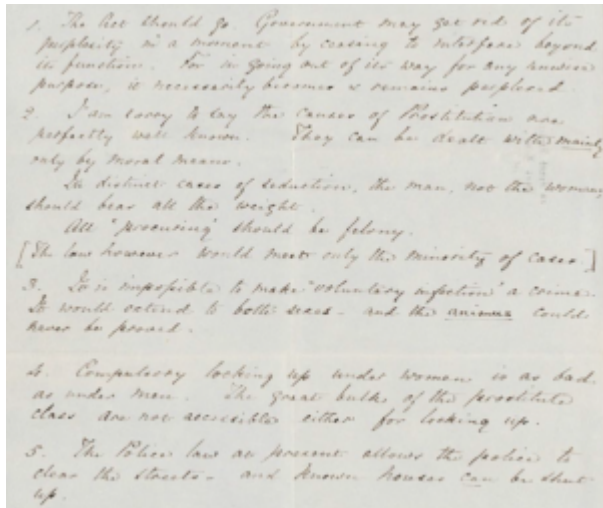 1. The Act should go. Government may get rid of its
perplexity in a moment by ceasing to interfere beyond
its function. For in going out of its way for any unwise
purpose, it necessarily becomes & remains perplexed.
2. I am sorry to say the causes of Prostitution are
perfectly well known. They can be dealt with mainly
only by moral means.
In distinct cases of seduction, the man, not the woman,
should bear all the weight.
All "procuring" should be felony.
[The law however would meet only the minority of cases.]
3. It is impossible to make "voluntary infection" a crime.
It would extend to both sexes - and the animus could
never be proved.
4. Compulsory locking up under women is as bad
as under men. The great bulk of the prostitute
class are not accessible either for locking up.
5. The Police law as present allows the police to
clear the streets - and known houses can be shut
up.